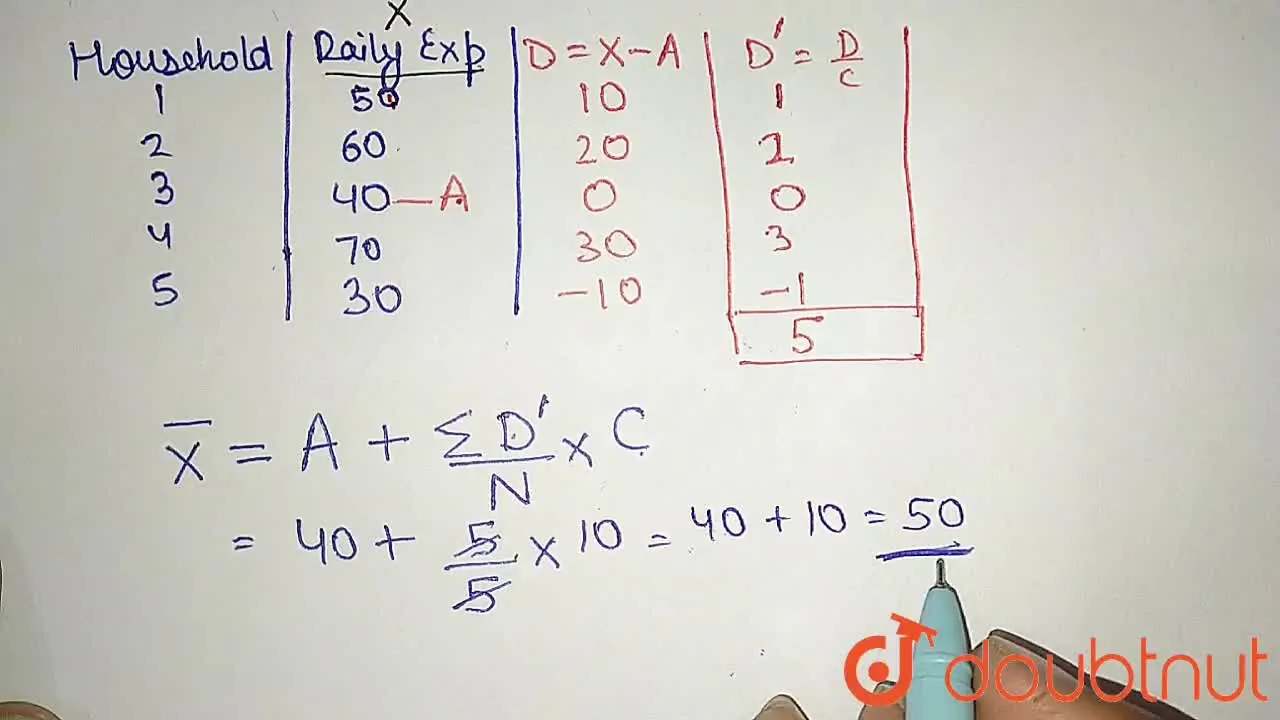 X
Household Daily Exp D = X - A D' = D/C
1 50 10 1
2 60 20 2
3 40 — A 0 0
4 70 30 3
5 30 -10 -1
5
X̅ = A + ΣD'/N × C
= 40 + 5/5 × 10 = 40 + 10 = 50
doubtnut